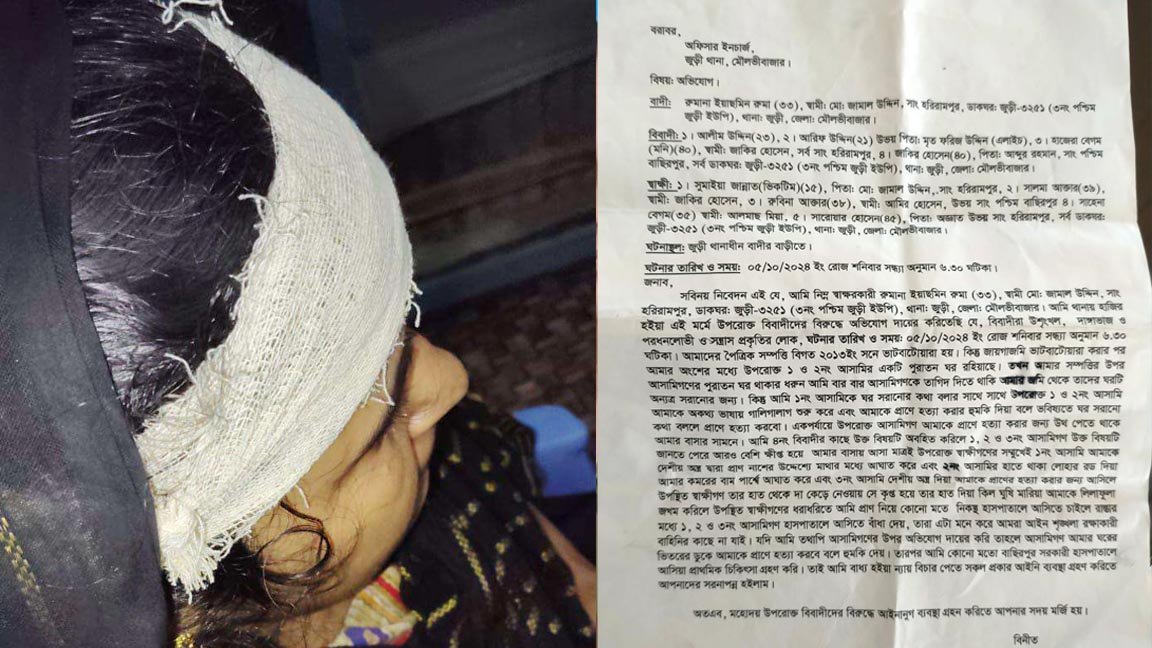 বরাবর,
অফিসার ইনচার্জ,
জুড়ী থানা, মৌলভীবাজার।
বিষয়: অভিযোগ।
বাদী: রুমানা ইয়াছমিন রুমা (৩৩), স্বামী: মো: জামাল উদ্দিন, সাং হরিরামপুর, ডাকঘর: জুড়ী-৩২৫১ (৩নং পশ্চিম
জুড়ী ইউপি), থানা: জুড়ী, জেলা: মৌলভীবাজার।
বিবাদী: ১। আলীম উদ্দিন(২৩), ২। আরিফ উদ্দিন(২১) উভয় পিতা: মৃত ফরিজ উদ্দিন (এলাইচ), ৩। হাজেরা বেগম
(মনি)(৪০), স্বামী: জাকির হোসেন, সর্ব সাং হরিরামপুর, ৪। জাকির হোসেন(৪০), পিতা: আব্দুর রহমান, সাং পশ্চিম
বাছিরপুর, সর্ব ডাকঘর: জুড়ী-৩২৫১ (৩নং পশ্চিম জুড়ী ইউপি), থানা: জুড়ী, জেলা: মৌলভীবাজার।
স্বাক্ষী: ১। সুমাইয়া জান্নাত(ভিকটিম)(১৫), পিতা: মো: জামাল উদ্দিন, সাং হরিরামপুর, ২। সালমা আক্তার(৩৯),
স্বামী: জাকির হোসেন, ৩। রুবিনা আক্তার(৩৮), স্বামী: আমির হোসেন, উভয় সাং পশ্চিম বাছিরপুর ৪। সাহেনা
বেগম(৩৫) স্বামী: আলমাছ মিয়া, ৫। সারোয়ার হোসেন(৪৫), পিতা: অজ্ঞাত উভয় সাং হরিরামপুর, সর্ব ডাকঘর:
জুড়ী-৩২৫১ (৩নং পশ্চিম জুড়ী ইউপি), থানা: জুড়ী, জেলা: মৌলভীবাজার।
ঘটনাস্থল: জুড়ী থানাধীন বাদীর বাড়ীতে।
ঘটনার তারিখ ও সময়: ০৫/১০/২০২৪ ইং রোজ শনিবার সন্ধ্যা অনুমান ৬.৩০ ঘটিকা।
জনাব,
সবিনয় নিবেদন এই যে, আমি নিম্ন স্বাক্ষরকারী রুমানা ইয়াছমিন রুমা (৩৩), স্বামী মো: জামাল উদ্দিন, সাং
হরিরামপুর, ডাকঘর: জুড়ী-৩২৫১ (৩নং পশ্চিম জুড়ী ইউপি), থানা: জুড়ী, জেলা: মৌলভীবাজার। আমি থানায় হাজির
হইয়া এই মর্মে উপরোক্ত বিবাদীদের বিরুদ্ধে অভিযোগ দায়ের করিতেছি যে, বিবাদীরা উশৃংখল, দাঙ্গাভাজ ও
পরধনলোভী ও সন্ত্রাস প্রকৃতির লোক, ঘটনার তারিখ ও সময়: ০৫/১০/২০২৪ ইং রোজ শনিবার সন্ধ্যা অনুমান ৬.৩০
ঘটিকা। আমাদের পৈত্রিক সম্পত্তি বিগত ২০১৩ইং সনে ভাটবাটোয়ারা হয়। কিন্তু জায়গাজমি ভাটবাটোয়ারা করার পর
আমার অংশের মধ্যে উপরোক্ত ১ ও ২নং আসামির একটি পুরাতন ঘর রহিয়াছে। তখন আমার সম্পত্তির উপর
আসামিগণের পুরাতন ঘর থাকার ধরুন আমি বার বার আসামিগণকে তাগিদ দিতে থাকি আমার জমি থেকে তাদের ঘরটি
অন্যত্র সরানোর জন্য। কিন্তু আমি ১নং আসামিকে ঘর সরানোর কথা বলার সাথে সাথে উপরোক্ত ১ ও ২নং আসামি
আমাকে অকথ্য ভাষায় গালিগালাগ শুরু করে এবং আমাকে প্রাণে হত্যা করার হুমকি দিয়া বলে ভবিষ্যতে ঘর সরানো
কথা বললে প্রাণে হত্যা করবো। একপর্যায়ে উপরোক্ত আসামিগণ আমাকে প্রাণে হত্যা করার জন্য উথ পেতে থাকে
আমার বাসার সামনে। আমি ৪নং বিবাদীর কাছে উক্ত বিষয়টি অবহিত করিলে ১, ২ ও ৩নং আসামিগণ উক্ত বিষয়টি
জানতে পেরে আরও বেশি ক্ষীপ্ত হয়ে আমার বাসায় আসা মাত্রই উপরোক্ত স্বাক্ষীগণের সম্মুখেই ১নং আসামি আমাকে
দেশীয় অস্ত্র দ্বারা প্রাণ নাশের উদ্দেশ্যে মাথার মধ্যে আঘাত করে এবং ২নং আসামির হাতে থাকা লোহার রড দিয়া
আমার কমরের বাম পার্শ্বে আঘাত করে এবং ৩নং আসামি দেশীয় অস্ত্র দিয়া আমাকে প্রাণের হত্যা করার জন্য আসিলে
উপস্থিত স্বাক্ষীগণ তার হাত থেকে দা কেড়ে নেওয়ায় সে কৃপ্ত হয়ে তার হাত দিয়া কিল ঘুষি মারিয়া আমাকে লিলাফুলা
জখম করিলে উপস্থিত স্বাক্ষীগণের ধরাধরিতে আমি প্রাণ নিয়ে কোনো মতে নিকস্থ হাসপাতালে আসিতে চাইলে রাস্তার
মধ্যে ১, ২ ও ৩নং আসামিগণ হাসপাতালে আসিতে বাঁধা দেয়, তারা এটা মনে করে আমরা আইন শৃঙ্খলা রক্ষাকারী
বাহিনির কাছে না যাই। যদি আমি তথাপি আসামিগণের উপর অভিযোগ দায়ের করি তাহলে আসামিগণ আমার ঘরের
ভিতরের ডুকে আমাকে প্রাণে হত্যা করবে বলে হুমকি দেয়। তারপর আমি কোনো মতো বাছিরপুর সরকারী হাসপাতালে
আসিয়া প্রাথমিক চিকিৎসা গ্রহণ করি। তাই আমি বাধ্য হইয়া ন্যায় বিচার পেতে সকল প্রকার আইনি ব্যবস্থা গ্রহণ করিতে
আপনাদের সরনাপন্ন হইলাম।
অতএব, মহোদয় উপরোক্ত বিবাদীদের বিরুদ্ধে আইনানুগ ব্যবস্থা গ্রহন করিতে আপনার সদয় মর্জি হয়।
বিনীত